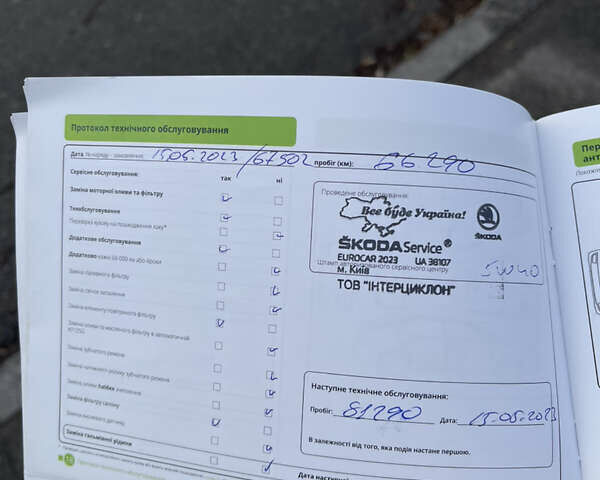 Протокол технічного обслуговування
Дата 15.05.2023 /67502 пробіг (км): 66290
Сервісне обслуговування: так ні
Заміна моторної оливи та фільтру
Техобслуговування
Перевірка кузову на пошкодження лаку*
Додаткове обслуговування
Додатково кожні 60 000 км або 4роки
Заміна паливного фільтру
Заміна свічок запалення
Заміна елементу повітряного фільтру
Заміна оливи та масляного фільтру в автоматичній
КП DSG
Заміна зубчатого ременя
Заміна натяжного ролику зубчатого ременя
Заміна оливи haldex зчеплення
Заміна фільтру салону
Заміна гальмівної рідини
18
Проведене обслуговування:
Все буде Україна!
ŠKODA
ŠKODA Service®
EUROCAR 2023 UA 38107
Штамп авторизованого сервісного центру
м. Київ
ТОВ "ІНТЕРЦИКЛОН"
5W40
Наступне технічне обслуговування:
Пробіг: 81290 Дата: 15.05.2023
В залежності від того, яка подія настане першою.
Дата наступ
Пер
ант